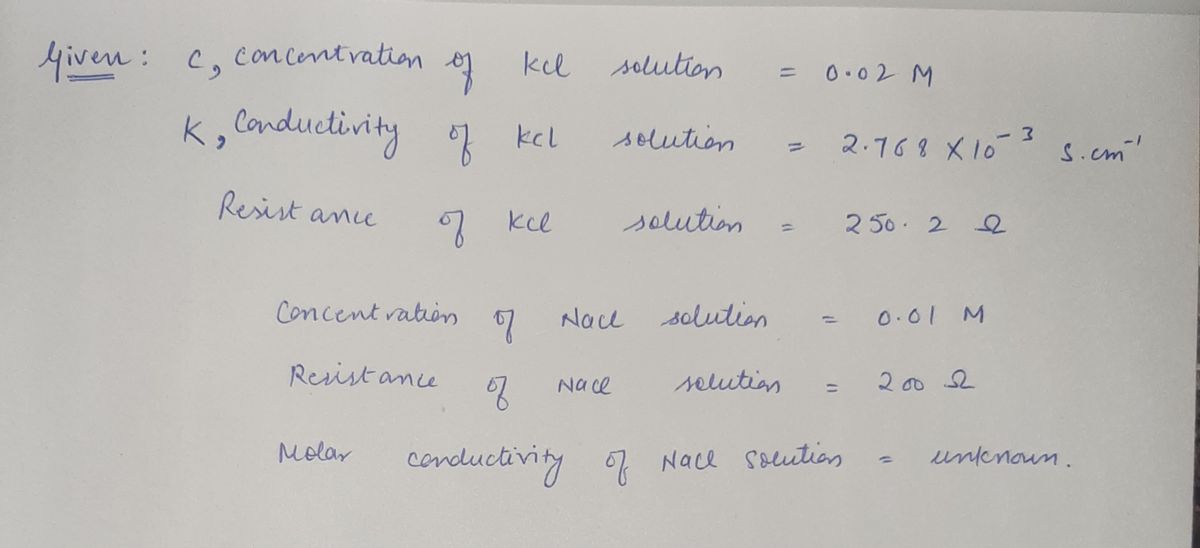 Given : C, concentration of kcl solution = 0.02 M
K, Conductivity of kcl solution = 2.768 X 10⁻³ S.cm⁻¹
Resistance of kcl solution = 250.2 Ω
Concentration of Nacl solution = 0.01 M
Resistance of Nacl solution = 200 Ω
Molar conductivity of Nacl solution = unknown.